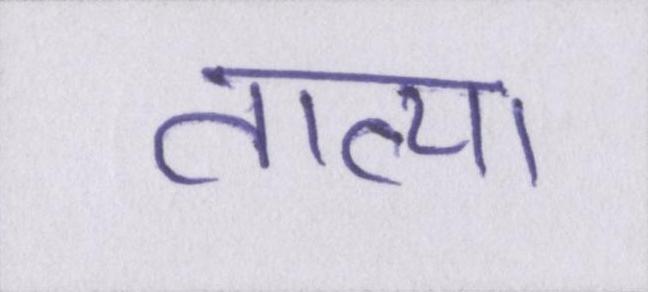 तात्या